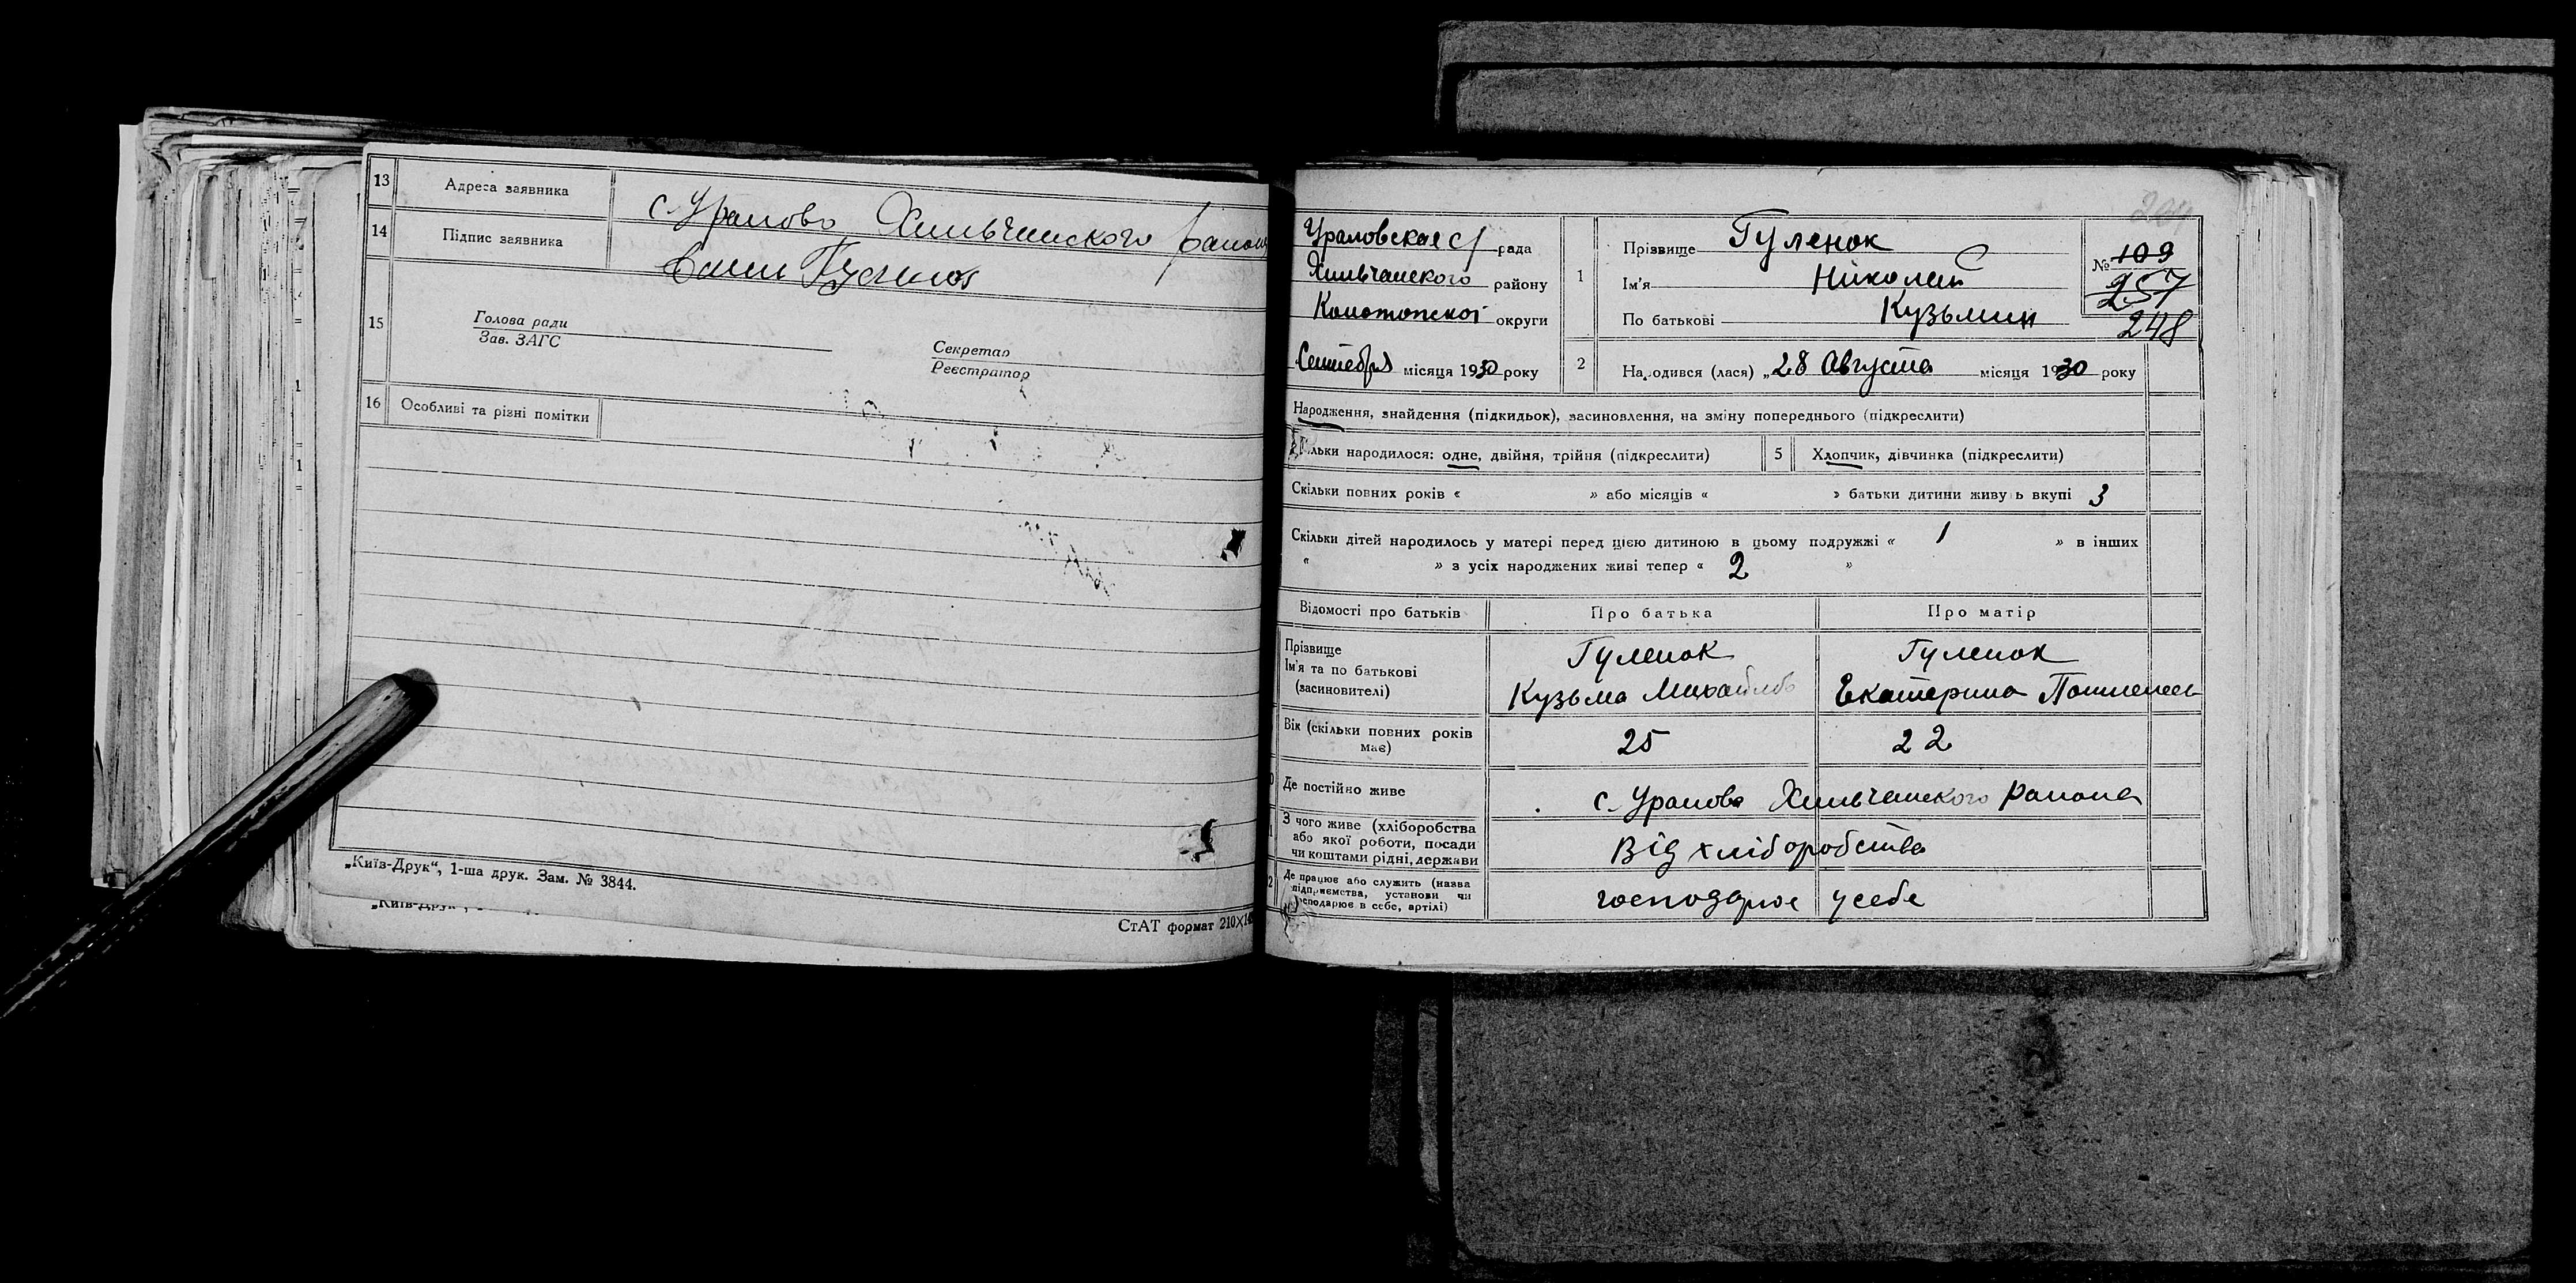 13 Адреса заявника с. Уралово Хильчанского района
14 Підпис заявника
15 Голова ради
Зав. ЗАГС
Секретар
Реєстратор
16 Особливі та різні помітки
„Київ-Друк“, 1-ша друк. Зам. № 3844.
СтАТ формат 210×
Ураловская с/ рада
Хильчанского району
Конотопскої округи
Сентебря місяця 1930 року
1 Прізвище Гуленок
Ім'я Николай
По батькові Кузьмин
№ 109
257
248
2 Народився (лася) „28 Августа місяця 1930 року
Народження, знайдення (підкидьок), засиновлення, на зміну попереднього (підкреслити)
льки народилося: одне, двійня, трійня (підкреслити) 5 Хлопчик, дівчинка (підкреслити)
Скільки повних років « » або місяців « » батьки дитини живу ь вкупі 3
Скільки дітей народилось у матері перед цією дитиною в цьому подружжі « 1 » в інших
« » з усіх народжених живі тепер « 2 »
Відомості про батьків Про батька Про матір
Прізвище Гуленок Гуленок
Ім'я та по батькові
(засиновителі) Кузьма Михайлов Екатерина
Вік (скільки повних років має) 25 22
Де постійно живе с. Уралово Хильчанского района
З чого живе (хліборобства
або якої роботи, посади
чи коштами рідні, держави Від хліборобства
Де працює або служить (назва
підприємства, установи чи
господарює в себе, артілі) господарює у себе